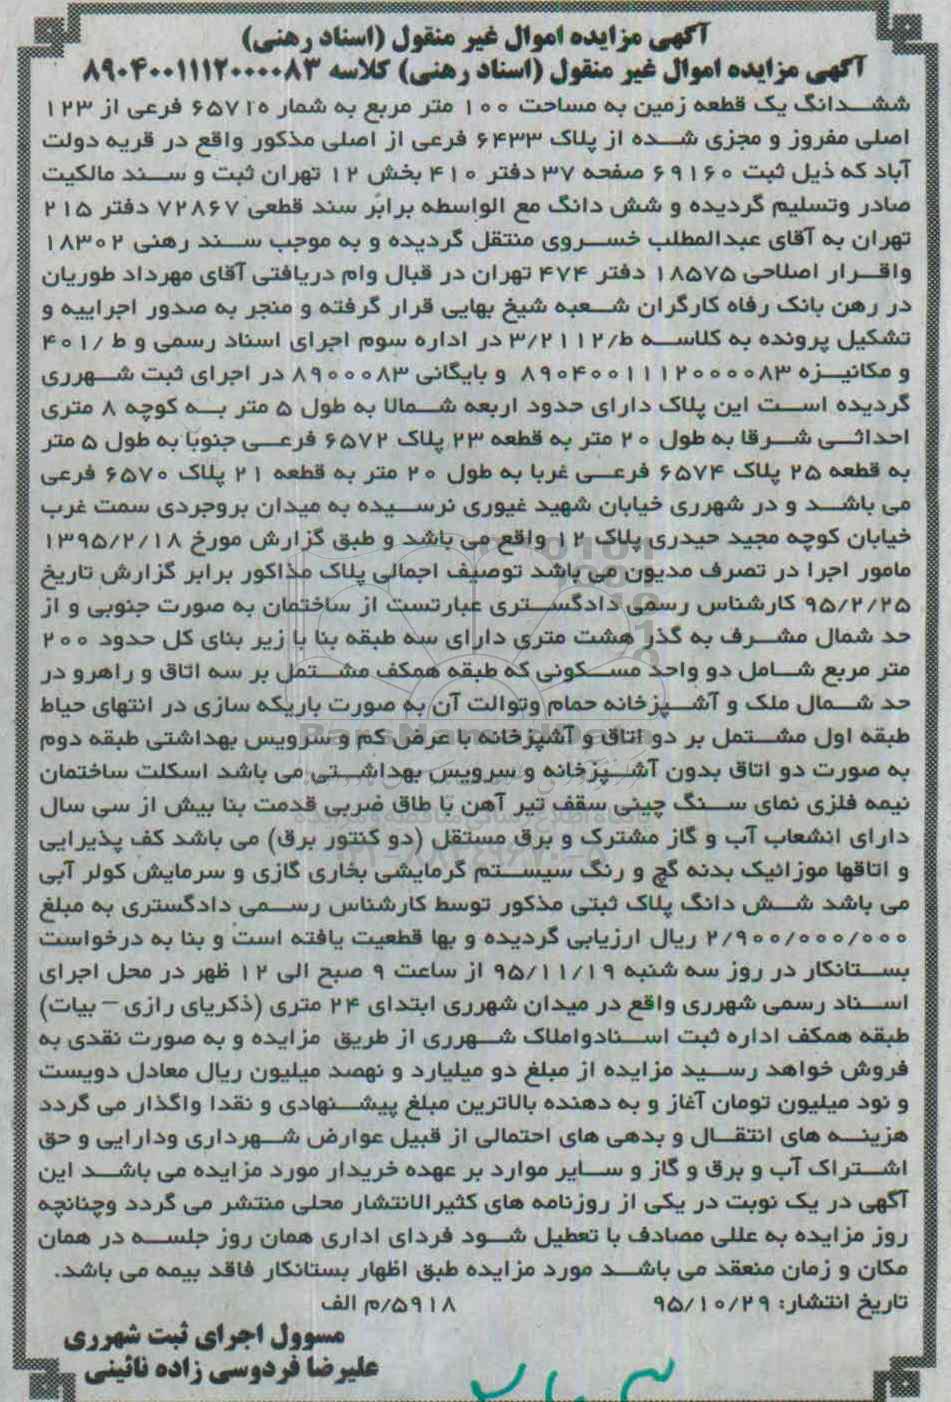 آگهی مزایده اموال غیر منقول (اسناد رهنی)
آگهی مزایده اموال غیر منقول (اسناد رهنی) کلاسه ۸۹۰۴۰۰۱۱۱۲۰۰۰۰۸۳
ششدانگ یک قطعه زمین به مساحت ۱۰۰ متر مربع به شمار ۶۵۷۱۵ فرعی از ۱۲۳
اصلی مفروز و مجزی شده از پلاک ۶۴۳۳ فرعی از اصلی مذکور واقع در قریه دولت
آباد که ذیل ثبت ۶۹۱۶۰ صفحه ۳۷ دفتر ۴۱۰ بخش ۱۲ تهران ثبت و سند مالکیت
صادر وتسلیم گردیده و شش دانگ مع الواسطه برابر سند قطعی ۷۲۸۶۷ دفتر ۲۱۵
تهران به آقای عبدالمطلب خسروی منتقل گردیده و به موجب سند رهنی ۱۸۳۰۲
واقرار اصلاحی ۱۸۵۷۵ دفتر ۴۷۴ تهران در قبال وام دریافتی آقای مهرداد طوریان
در رهن بانک رفاه کارگران شعبه شیخ بهایی قرار گرفته و منجر به صدور اجراییه و
تشکیل پرونده به کلاسه ط/۳/۲۱۱۲ در اداره سوم اجرای اسناد رسمی و ط /۴۰۱
و مکانیزه ۸۹۰۴۰۰۱۱۱۲۰۰۰۰۸۳ و بایگانی ۸۹۰۰۰۸۳ در اجرای ثبت شهرری
گردیده است این پلاک دارای حدود اربعه شمالا به طول ۵ متر به کوچه ۸ متری
احداثی شرقا به طول ۲۰ متر به قطعه ۲۳ پلاک ۶۵۷۲ فرعی جنوبا به طول ۵ متر
به قطعه ۲۵ پلاک ۶۵۷۴ فرعی غربا به طول ۲۰ متر به قطعه ۲۱ پلاک ۶۵۷۰ فرعی
می باشد و در شهرری خیابان شهید غیوری نرسیده به میدان بروجردی سمت غرب
خیابان کوچه مجید حیدری پلاک ۱۲ واقع می باشد و طبق گزارش مورخ ۱۳۹۵/۲/۱۸
مامور اجرا در تصرف مدیون می باشد توصیف اجمالی پلاک مذاکور برابر گزارش تاریخ
۹۵/۲/۲۵ کارشناس رسمی دادگستری عبارتست از ساختمان به صورت جنوبی و از
حد شمال مشرف به گذر هشت متری دارای سه طبقه بنا با زیر بنای کل حدود ۲۰۰
متر مربع شامل دو واحد مسکونی که طبقه همکف مشتمل بر سه اتاق و راهرو در
حد شمال ملک و آشپزخانه حمام وتوالت آن به صورت باریکه سازی در انتهای حیاط
طبقه اول مشتمل بر دو اتاق و آشپزخانه با عرض کم و سرویس بهداشتی طبقه دوم
به صورت دو اتاق بدون آشپزخانه و سرویس بهداشتی می باشد اسکلت ساختمان
نیمه فلزی نمای سنگ چینی سقف تیر آهن با طاق ضربی قدمت بنا بیش از سی سال
دارای انشعاب آب و گاز مشترک و برق مستقل (دو کنتور برق) می باشد کف پذیرایی
و اتاقها موزائیک بدنه گچ و رنگ سیستم گرمایشی بخاری گازی و سرمایش کولر آبی
می باشد شش دانگ پلاک ثبتی مذکور توسط کارشناس رسمی دادگستری به مبلغ
۲/۹۰۰/۰۰۰/۰۰۰ ریال ارزیابی گردیده و بها قطعیت یافته است و بنا به درخواست
بستانکار در روز سه شنبه ۹۵/۱۱/۱۹ از ساعت ۹ صبح الی ۱۲ ظهر در محل اجرای
اسناد رسمی شهرری واقع در میدان شهرری ابتدای ۲۴ متری (ذکریای رازی – بیات)
طبقه همکف اداره ثبت اسنادواملاک شهرری از طریق مزایده و به صورت نقدی به
فروش خواهد رسید مزایده از مبلغ دو میلیارد و نهصد میلیون ریال معادل دویست
و نود میلیون تومان آغاز و به دهنده بالاترین مبلغ پیشنهادی و نقدا واگذار می گردد
هزینه های انتقال و بدهی های احتمالی از قبیل عوارض شهرداری ودارایی و حق
اشتراک آب و برق و گاز و سایر موارد بر عهده خریدار مورد مزایده می باشد این
آگهی در یک نوبت در یکی از روزنامه های کثیرالانتشار محلی منتشر می گردد وچنانچه
روز مزایده به عللی مصادف با تعطیل شود فردای اداری همان روز جلسه در همان
مکان و زمان منعقد می باشد مورد مزایده طبق اظهار بستانکار فاقد بیمه می باشد.
تاریخ انتشار: ۹۵/۱۰/۲۹ ۵۹۱۸/م الف
مسوول اجرای ثبت شهرری
علیرضا فردوسی زاده نائینی